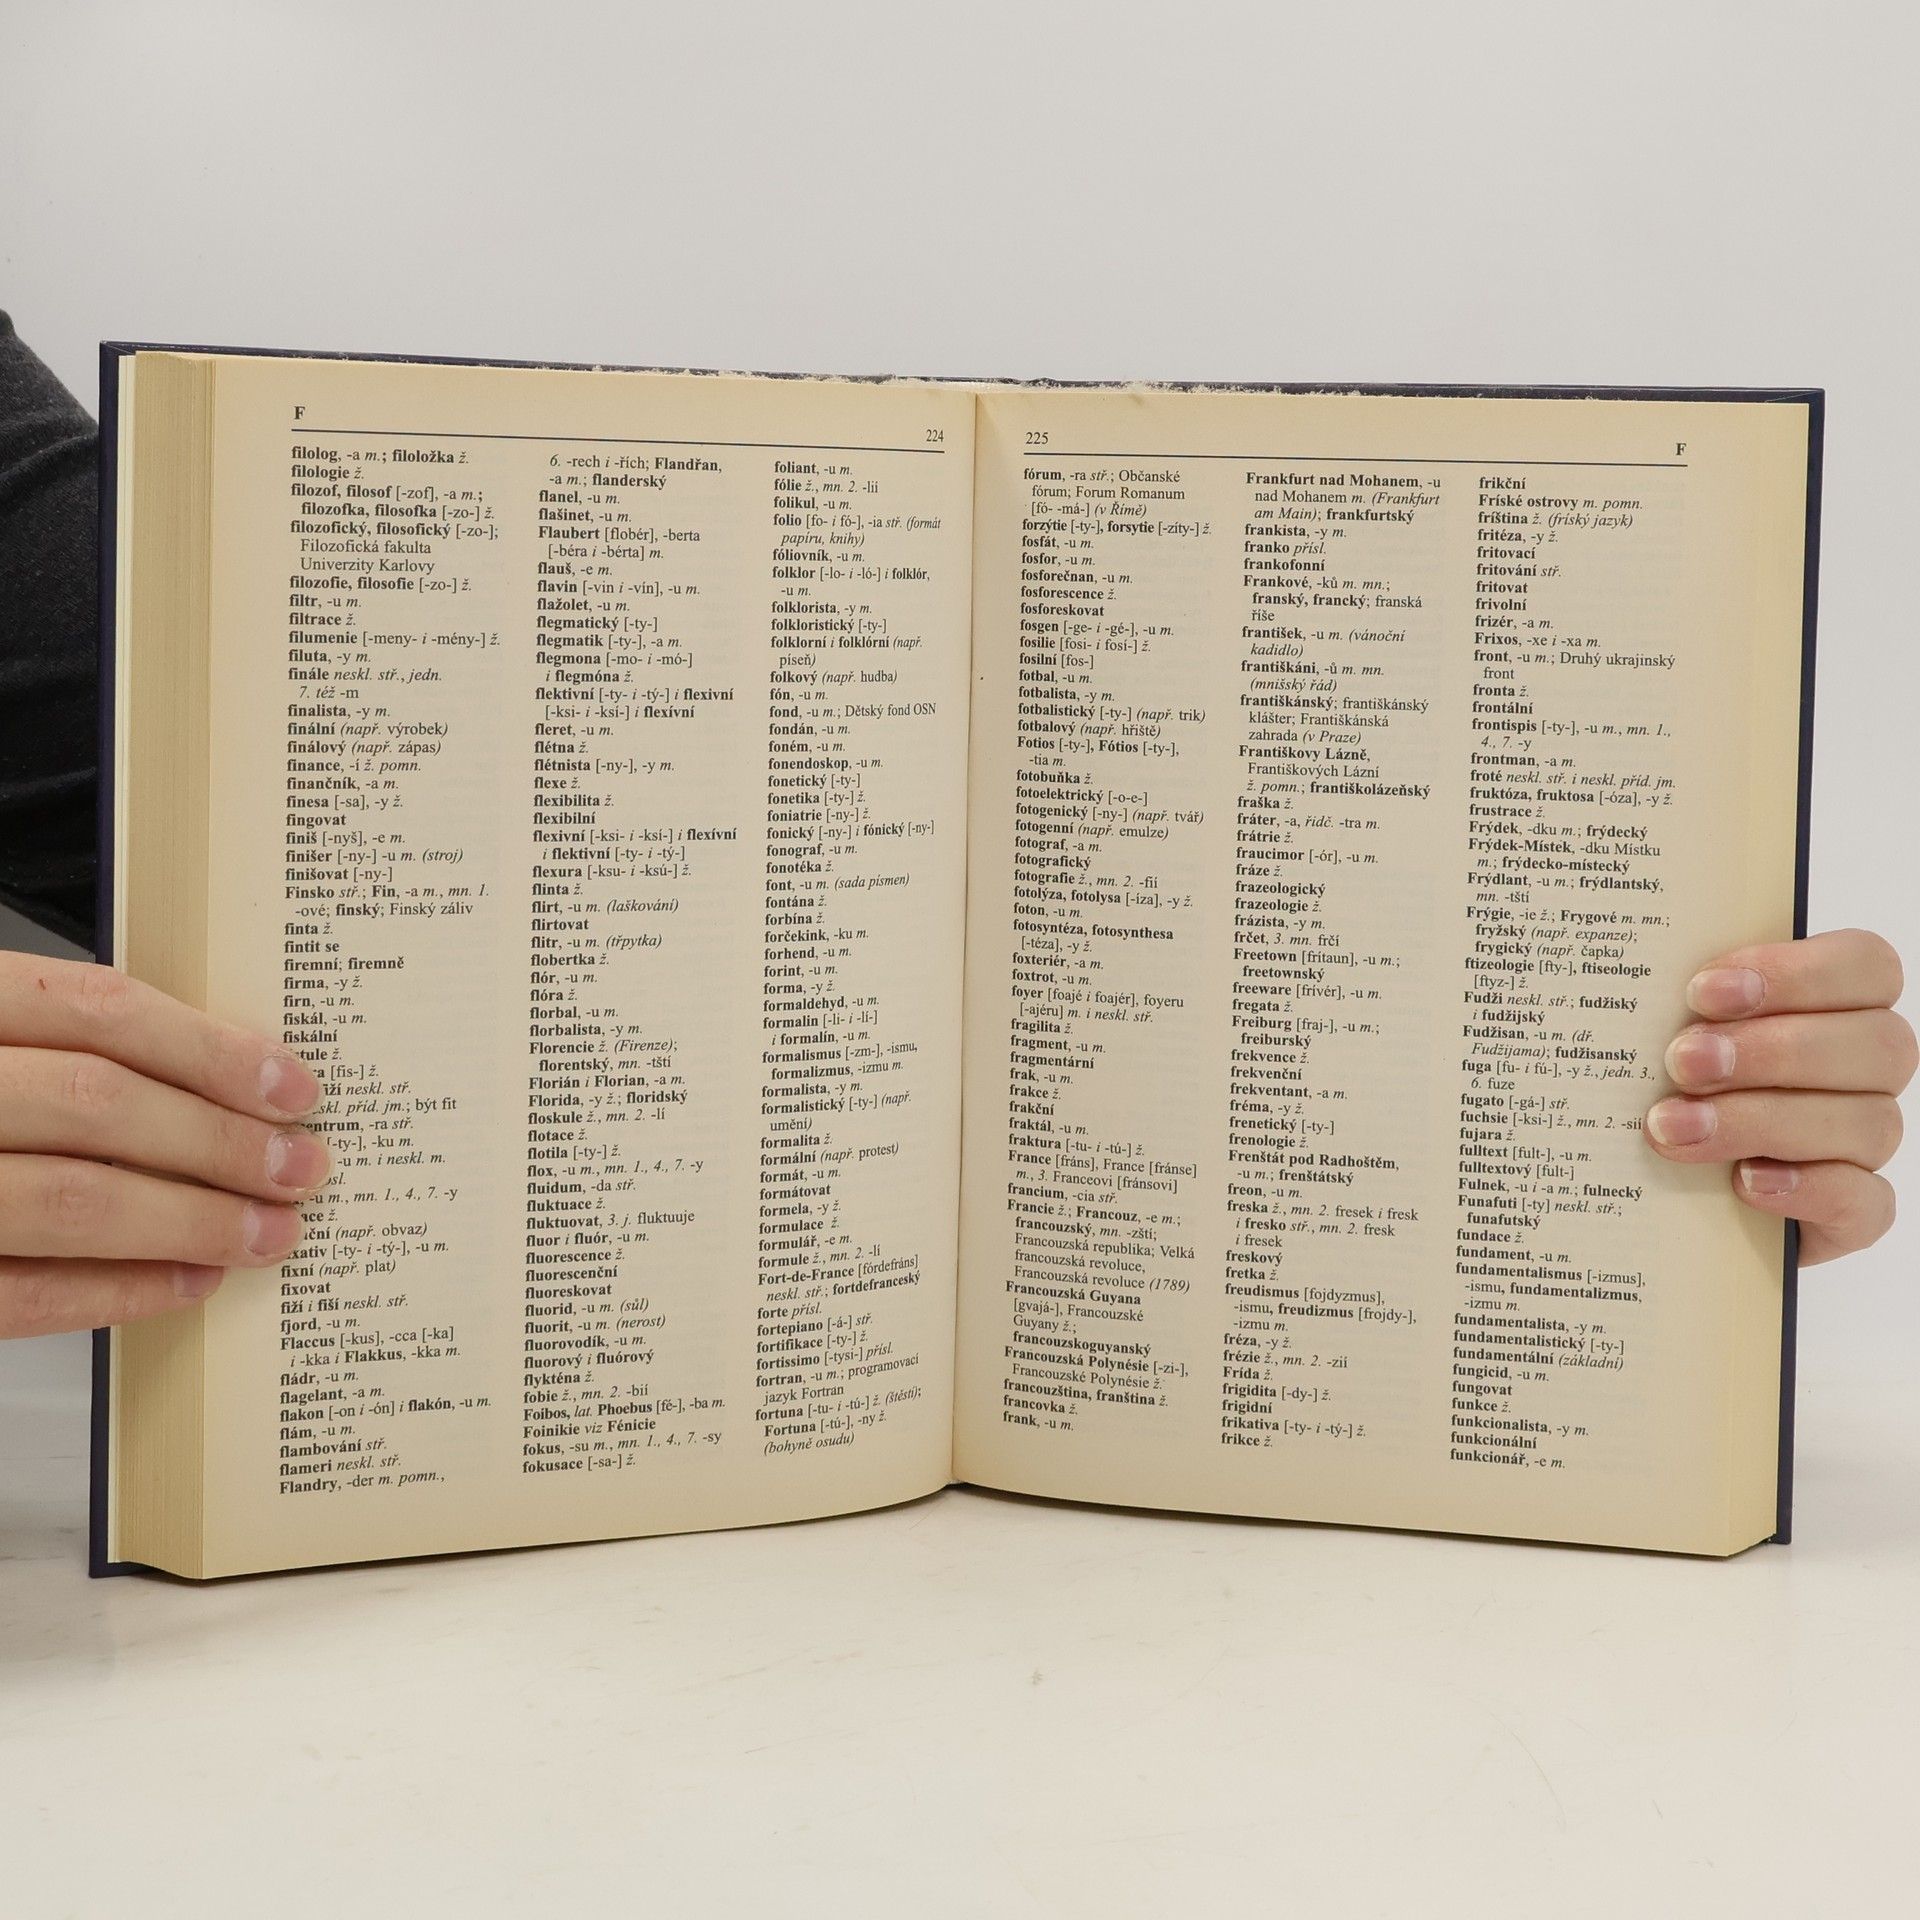 F
224
filolog, -a m.; filoložka ž.
filologie ž.
filozof, filosof [-zof], -a m.;
filozofka, filosofka [-zo-] ž.
filozofický, filosofický [-zo-];
Filozofická fakulta
Univerzity Karlovy
filozofie, filosofie [-zo-] ž.
filtr, -u m.
filtrace ž.
filumenie [-meny- i -mény-] ž.
filuta, -y m.
finále neskl. stř., jedn.
7. též -m
finalista, -y m.
finální (např. výrobek)
finálový (např. zápas)
finance, -í ž. pomn.
finančník, -a m.
finesa [-sa], -y ž.
fingovat
finiš [-nyš], -e m.
finišer [-ny-] -u m. (stroj)
finišovat [-ny-]
Finsko stř.; Fin, -a m., mn. 1.
-ové; finský; Finský záliv
finta ž.
fintit se
firemní; firemně
firma, -y ž.
firn, -u m.
fiskál, -u m.
fiskální
ž.
[fis-] ž.
fiží neskl. stř.
příd. jm.; být fit
-ra stř.
[-ty-], -ku m.
-u m. i neskl. m.
-u m., mn. 1., 4., 7. -y
ž.
(např. obvaz)
[-ty- i -tý-], -u m.
fixní (např. plat)
fixovat
fiží i fiší neskl. stř.
fjord, -u m.
Flaccus [-kus], -cca [-ka]
i -kka i Flakkus, -kka m.
fládr, -u m.
flagelant, -a m.
flakon [-on i -ón] i flakón, -u m.
flám, -u m.
flambování stř.
flameri neskl. stř.
Flandry, -der m. pomn.,
6. -rech i -řích; Flandřan,
-a m.; flanderský
flanel, -u m.
flašinet, -u m.
Flaubert [flobér], -berta
[-béra i -bérta] m.
flauš, -e m.
flavin [-vin i -vín], -u m.
flažolet, -u m.
flegmatický [-ty-]
flegmatik [-ty-], -a m.
flegmona [-mo- i -mó-]
i flegmóna ž.
flektivní [-ty- i -tý-] i flexivní
[-ksi- i -ksí-] i flexívní
fleret, -u m.
flétna ž.
flétnista [-ny-], -y m.
flexe ž.
flexibilita ž.
flexibilní
flexivní [-ksi- i -ksí-] i flexívní
i flektivní [-ty- i -tý-]
flexura [-ksu- i -ksú-] ž.
flinta ž.
flirt, -u m. (laškování)
flirtovat
flitr, -u m. (třpytka)
flobertka ž.
flór, -u m.
flóra ž.
florbal, -u m.
florbalista, -y m.
Florencie ž. (Firenze);
florentský, mn. -tští
Florián i Florian, -a m.
Florida, -y ž.; floridský
floskule ž., mn. 2. -lí
flotace ž.
flotila [-ty-] ž.
flox, -u m., mn. 1., 4., 7. -y
fluidum, -da stř.
fluktuace ž.
fluktuovat, 3. j. fluktuuje
fluor i fluór, -u m.
fluorescence ž.
fluorescenční
fluoreskovat
fluorid, -u m. (sůl)
fluorit, -u m. (nerost)
fluorovodík, -u m.
fluorový i fluórový
flykténa ž.
fobie ž., mn. 2. -bií
Foibos, lat. Phoebus [fé-], -ba m.
Foinikie viz Fénicie
fokus, -su m., mn. 1., 4., 7. -sy
fokusace [-sa-] ž.
foliant, -u m.
fólie ž., mn. 2. -lií
folikul, -u m.
folio [fo- i fó-], -ia stř. (formát
papíru, knihy)
fóliovník, -u m.
folklor [-lo- i -ló-] i folklór,
-u m.
folklorista, -y m.
folkloristický [-ty-]
folklorní i folklórní (např.
píseň)
folkový (např. hudba)
fón, -u m.
fond, -u m.; Dětský fond OSN
fondán, -u m.
foném, -u m.
fonendoskop, -u m.
fonetický [-ty-]
fonetika [-ty-] ž.
foniatrie [-ny-] ž.
fonický [-ny-] i fónický [-ny-]
fonograf, -u m.
fonotéka ž.
font, -u m. (sada písmen)
fontána ž.
forbína ž.
forčekink, -ku m.
forhend, -u m.
forint, -u m.
forma, -y ž.
formaldehyd, -u m.
formalin [-li- i -lí-]
i formalín, -u m.
formalismus [-zm-], -ismu,
formalizmus, -izmu m.
formalista, -y m.
formalistický [-ty-] (např.
umění)
formalita ž.
formální (např. protest)
formát, -u m.
formátovat
formela, -y ž.
formulace ž.
formulář, -e m.
formule ž., mn. 2. -lí
Fort-de-France [fórdefráns]
neskl. stř.; fortdefranceský
forte přísl.
fortepiano [-á-] stř.
fortifikace [-ty-] ž.
fortissimo [-tysi-] přísl.
fortran, -u m.; programovací
jazyk Fortran
fortuna [-tu- i -tú-] ž. (štěstí);
Fortuna [-tú-], -ny ž.
(bohyně osudu)
225
F
fórum, -ra stř.; Občanské
fórum; Forum Romanum
[fó- -má-] (v Římě)
forzýtie [-ty-], forsytie [-zíty-] ž.
fosfát, -u m.
fosfor, -u m.
fosforečnan, -u m.
fosforescence ž.
fosforeskovat
fosgen [-ge- i -gé-], -u m.
fosilie [fosi- i fosí-] ž.
fosilní [fos-]
fotbal, -u m.
fotbalista, -y m.
fotbalistický [-ty-] (např. trik)
fotbalový (např. hřiště)
Fotios [-ty-], Fótios [-ty-],
-tia m.
fotobuňka ž.
fotoelektrický [-o-e-]
fotogenický [-ny-] (např. tvář)
fotogenní (např. emulze)
fotograf, -a m.
fotografický
fotografie ž., mn. 2. -fií
fotolýza, fotolysa [-íza], -y ž.
foton, -u m.
fotosyntéza, fotosynthesa
[-téza], -y ž.
foxteriér, -a m.
foxtrot, -u m.
foyer [foajé i foajér], foyeru
[-ajéru] m. i neskl. stř.
fragilita ž.
fragment, -u m.
fragmentární
frak, -u m.
frakce ž.
frakční
fraktál, -u m.
fraktura [-tu- i -tú-] ž.
France [fráns], France [fránse]
m., 3. Franceovi [fránsovi]
francium, -cia stř.
Francie ž.; Francouz, -e m.;
francouzský, mn. -zští;
Francouzská republika; Velká
francouzská revoluce,
Francouzská revoluce (1789)
Francouzská Guyana
[gvajá-], Francouzské
Guyany ž.;
francouzskoguyanský
Francouzská Polynésie [-zi-],
Francouzské Polynésie ž.
francouzština, franština ž.
francovka ž.
frank, -u m.
Frankfurt nad Mohanem, -u
nad Mohanem m. (Frankfurt
am Main); frankfurtský
frankista, -y m.
franko přísl.
frankofonní
Frankové, -ků m. mn.;
franský, francký; franská
říše
františek, -u m. (vánoční
kadidlo)
františkáni, -ů m. mn.
(mnišský řád)
františkánský; františkánský
klášter; Františkánská
zahrada (v Praze)
Františkovy Lázně,
Františkových Lázní
ž. pomn.; františkolázeňský
fraška ž.
fráter, -a, řidč. -tra m.
frátrie ž.
fraucimor [-ór], -u m.
fráze ž.
frazeologický
frazeologie ž.
frázista, -y m.
frčet, 3. mn. frčí
Freetown [frítaun], -u m.;
freetownský
freeware [frívér], -u m.
fregata ž.
Freiburg [fraj-], -u m.;
freiburský
frekvence ž.
frekvenční
frekventant, -a m.
fréma, -y ž.
frenetický [-ty-]
frenologie ž.
Frenštát pod Radhoštěm,
-u m.; frenštátský
freon, -u m.
freska ž., mn. 2. fresek i fresk
i fresko stř., mn. 2. fresk
i fresek
freskový
fretka ž.
freudismus [fojdyzmus],
-ismu, freudizmus [frojdy-],
-izmu m.
fréza, -y ž.
frézie ž., mn. 2. -zií
Frída ž.
frigidita [-dy-] ž.
frigidní
frikativa [-ty- i -tý-] ž.
frikce ž.
frikční
Fríské ostrovy m. pomn.
fríština ž. (fríský jazyk)
fritéza, -y ž.
fritovací
fritování stř.
fritovat
frivolní
frizér, -a m.
Frixos, -xe i -xa m.
front, -u m.; Druhý ukrajinský
front
fronta ž.
frontální
frontispis [-ty-], -u m., mn. 1.,
4., 7. -y
frontman, -a m.
froté neskl. stř. i neskl. příd. jm.
fruktóza, fruktosa [-óza], -y ž.
frustrace ž.
Frýdek, -dku m.; frýdecký
Frýdek-Místek, -dku Místku
m.; frýdecko-místecký
Frýdlant, -u m.; frýdlantský,
mn. -tští
Frýgie, -ie ž.; Frygové m. mn.;
fryžský (např. expanze);
frygický (např. čapka)
ftizeologie [fty-], ftiseologie
[ftyz-] ž.
Fudži neskl. stř.; fudžiský
i fudžijský
Fudžisan, -u m. (dř.
Fudžijama); fudžisanský
fuga [fu- i fú-], -y ž., jedn. 3.,
6. fuze
fugato [-gá-] stř.
fuchsie [-ksi-] ž., mn. 2. -sií
fujara ž.
fulltext [fult-], -u m.
fulltextový [fult-]
Fulnek, -u i -a m.; fulnecký
Funafuti [-ty] neskl. stř.;
funafutský
fundace ž.
fundament, -u m.
fundamentalismus [-izmus],
-ismu, fundamentalizmus,
-izmu m.
fundamentalista, -y m.
fundamentalistický [-ty-]
fundamentální (základní)
fungicid, -u m.
fungovat
funkce ž.
funkcionalista, -y m.
funkcionální
funkcionář, -e m.